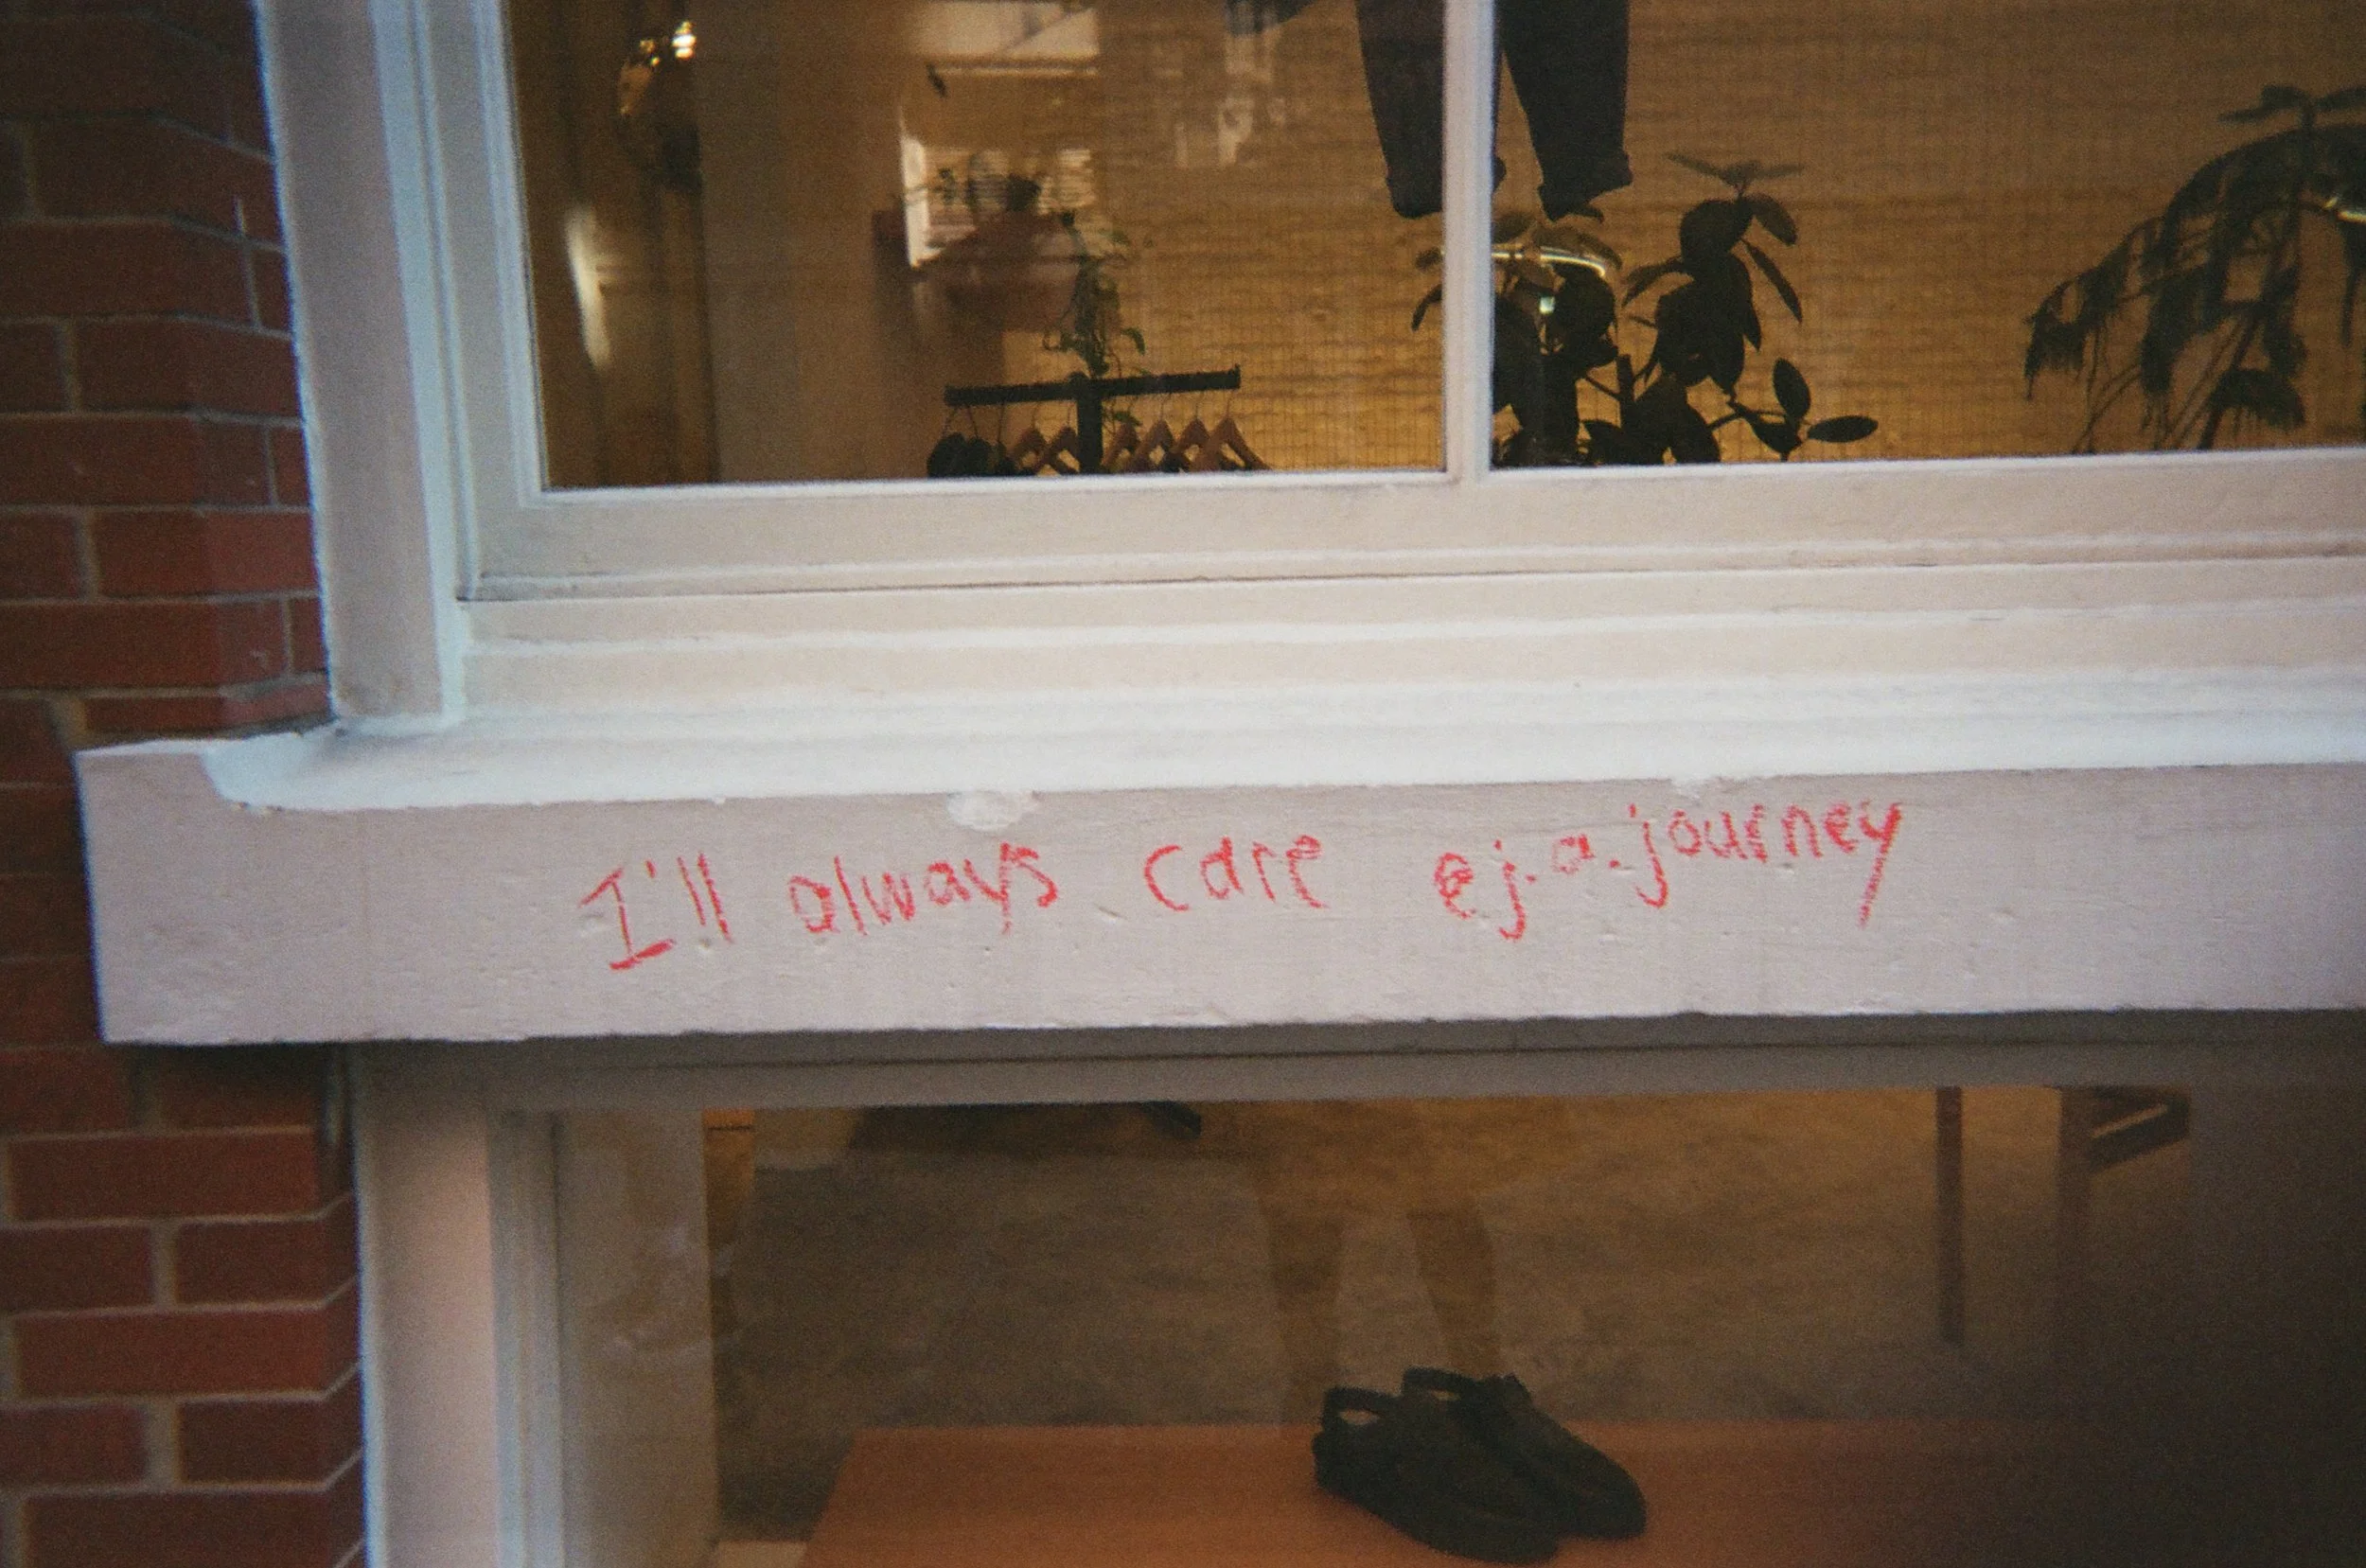 I'll always care ej.a.journey